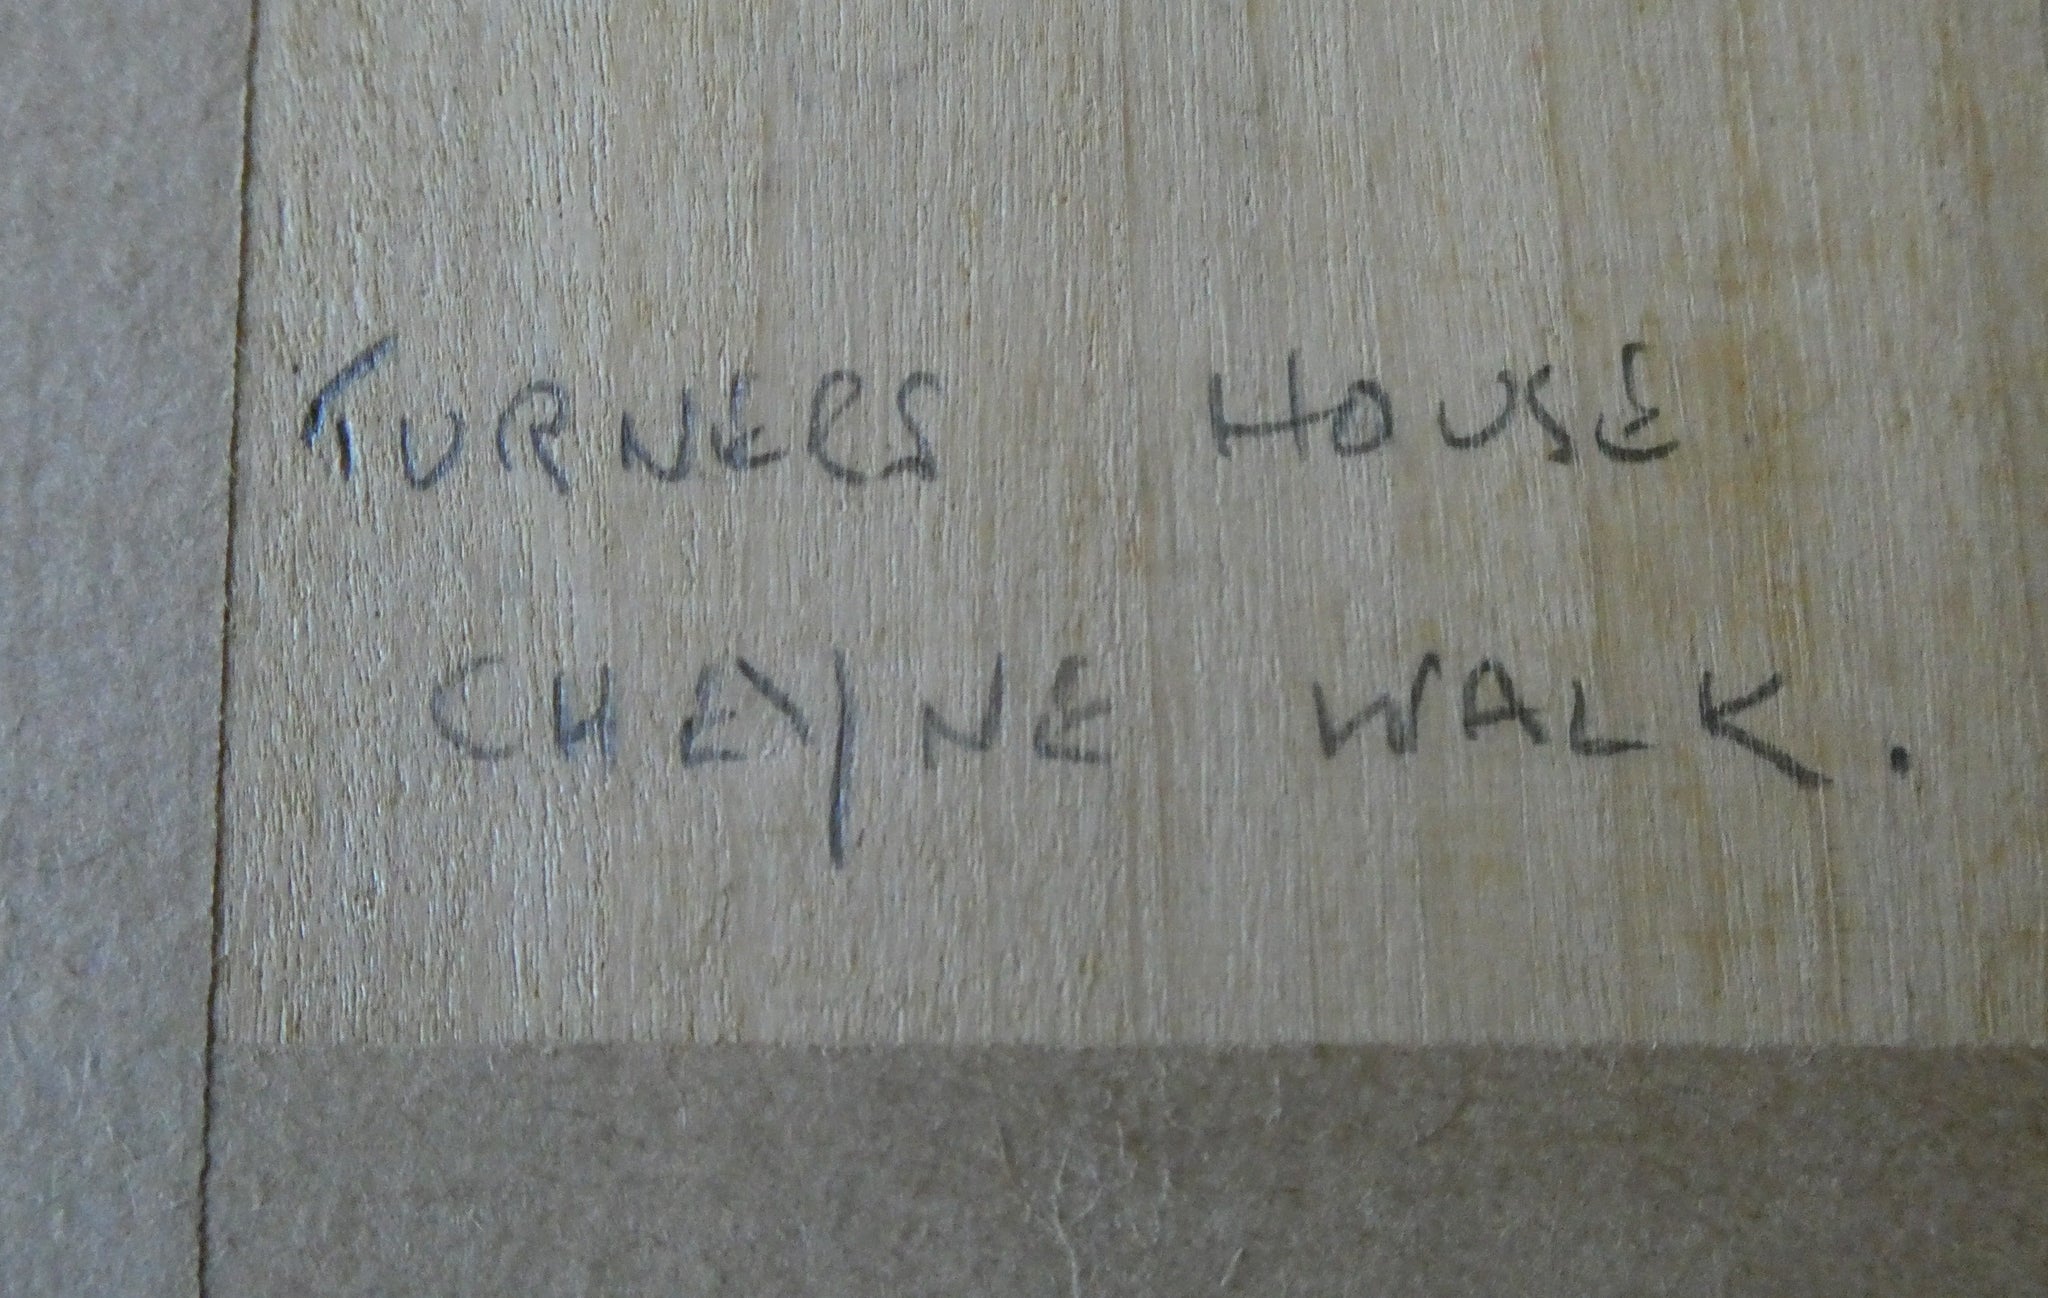 TURNERS HOUSE
CHEYNE WALK.